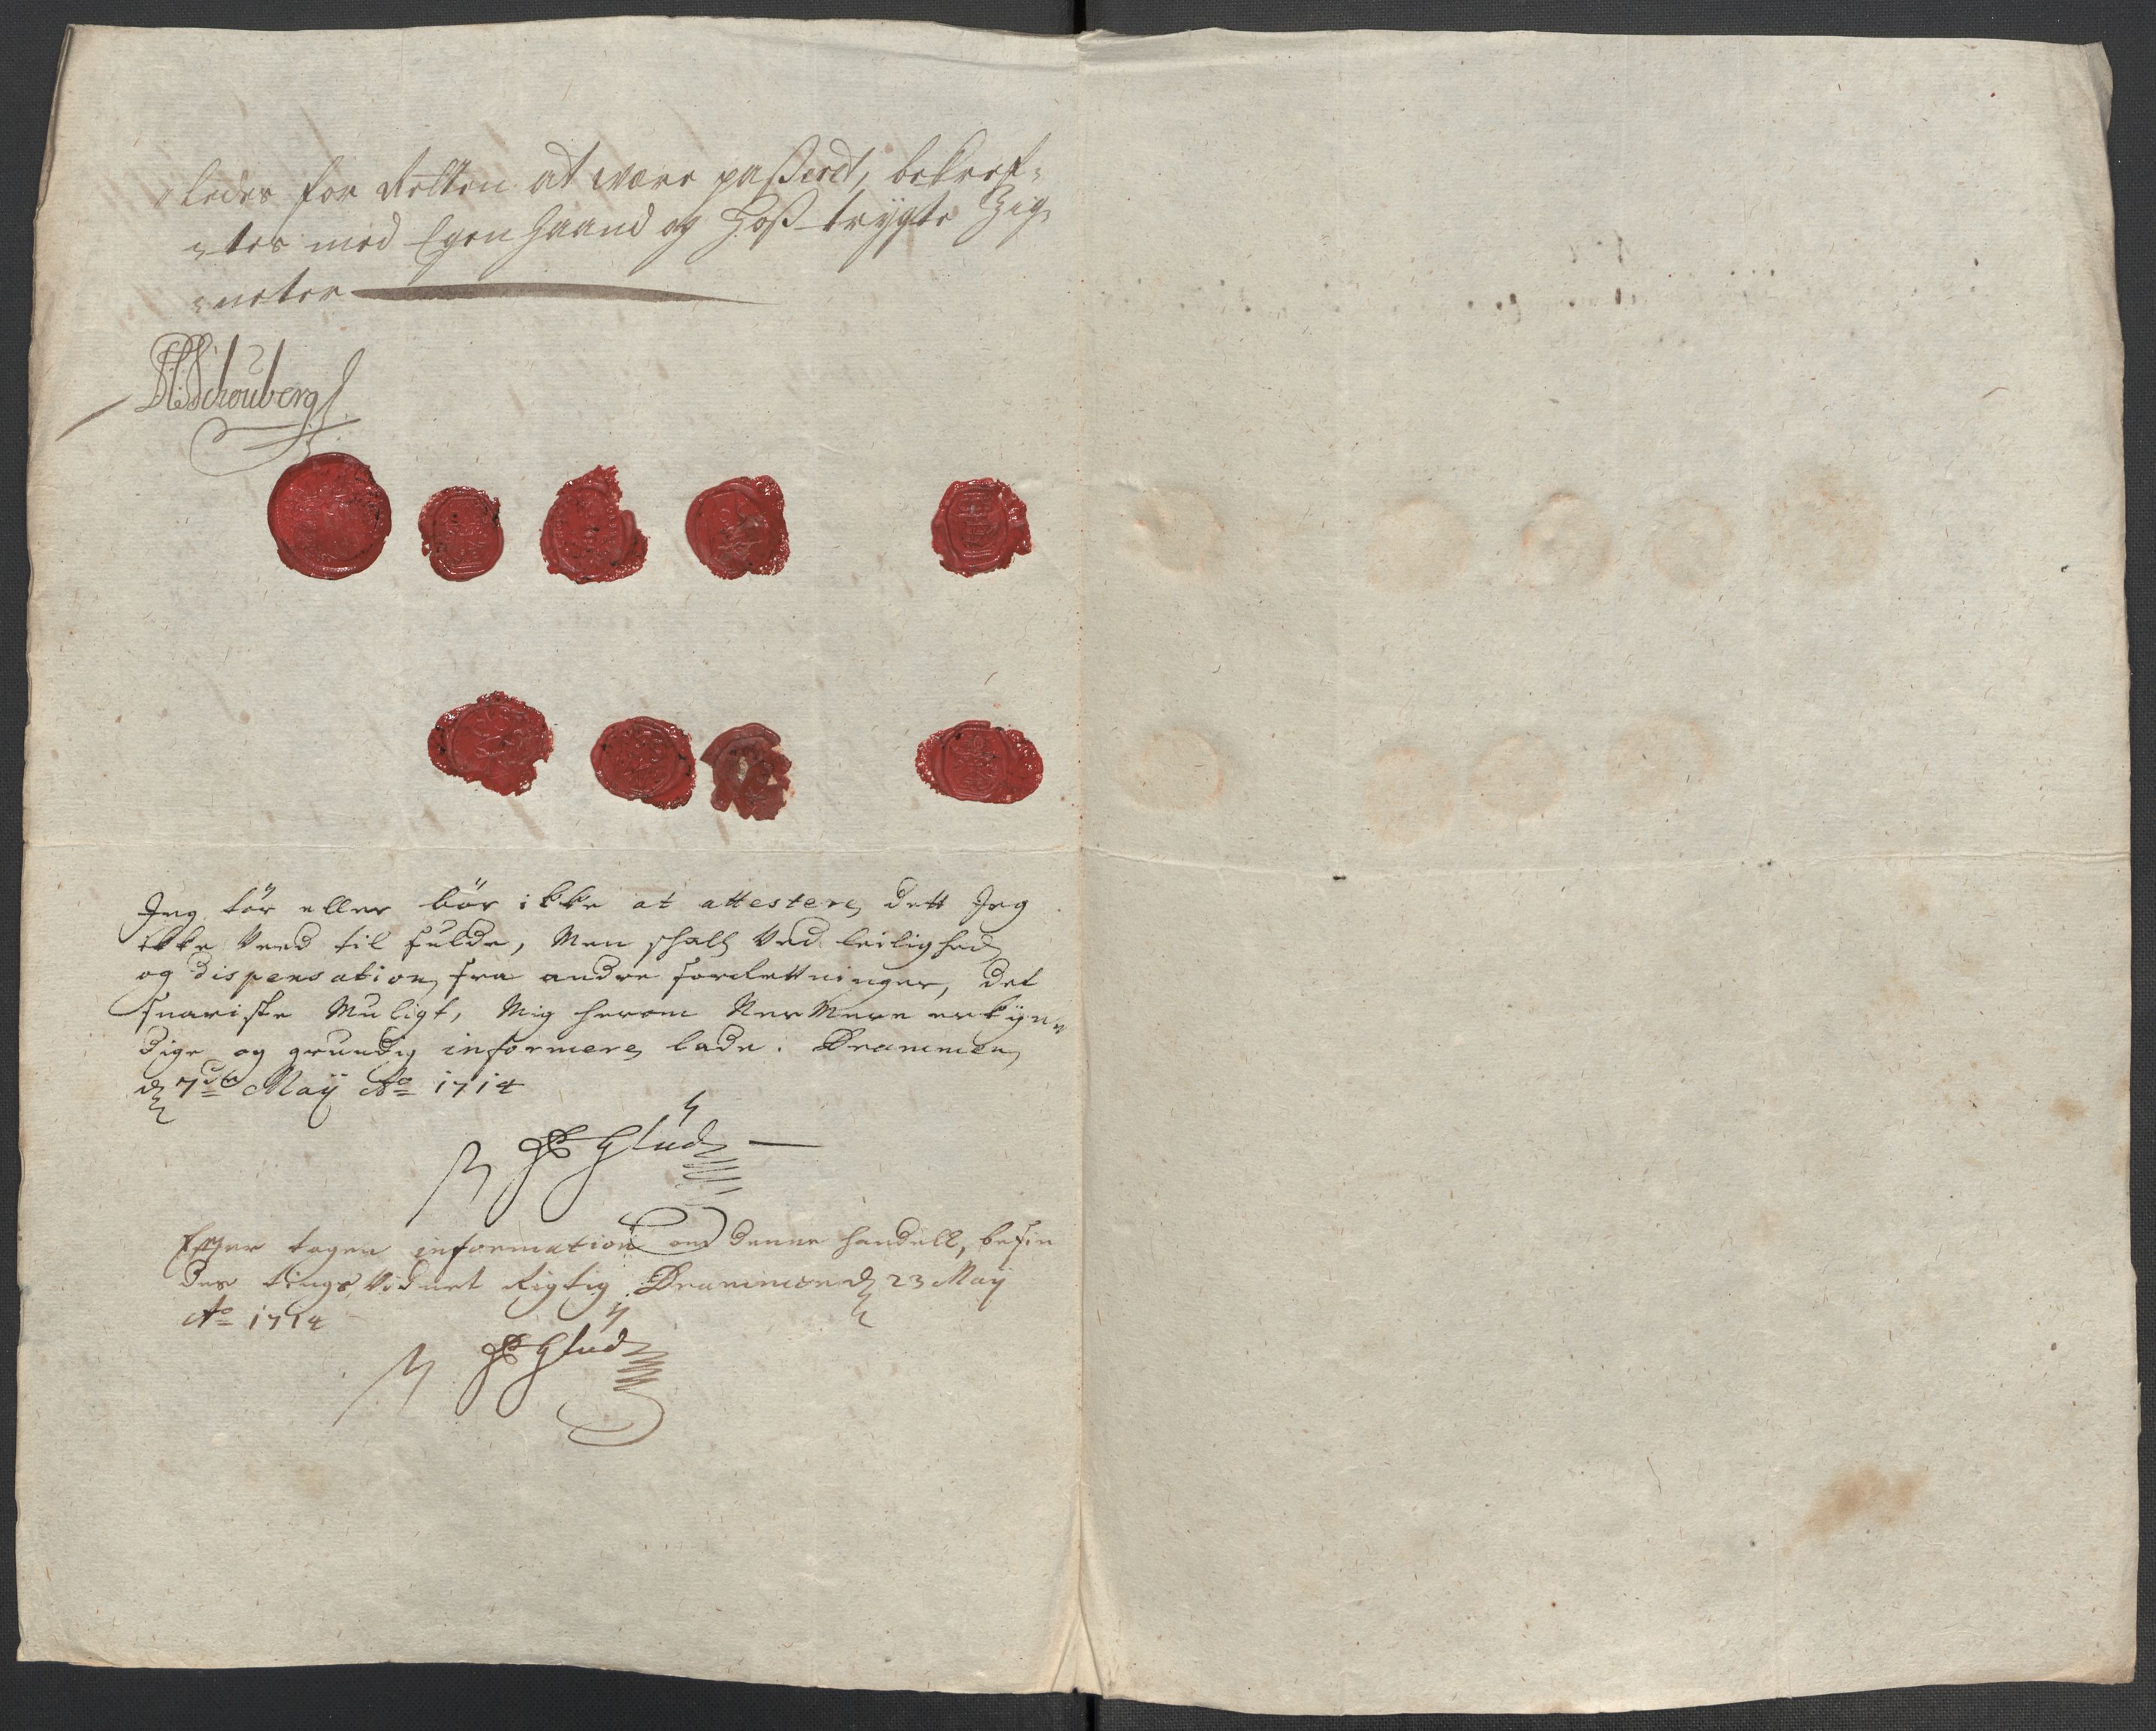 „ledes for Retten at være passeret, bekref„
„tes med Egen haand og Hostrygte Zig„
„neter
HSchouberg
Jeg tör eller bör ikke at attestere, dett Jeg
ikke Veed til fulde, Men schall Ved leilighed
og dispensation, fra andre forrettninger, det
snariste Muligt, Mig herom Nermere erkyn„
dige og grundig informere lade. Drammen,
d 7de Maÿ Ao 1714
Glud
Efter tagen information om denne handell, befin
des tings Vidnet Rigtig. Drammen d 23 Maÿ
Ao 1714
Glud